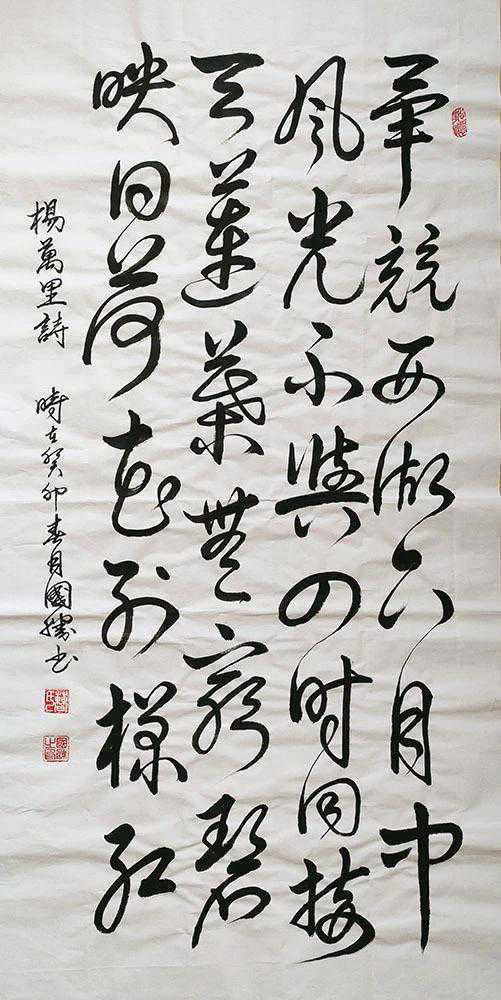 畢竟西湖六月中
風光不與四時同接
天蓮葉無窮碧
映日荷花別樣紅
楊萬里詩 時在癸卯春月國勝书